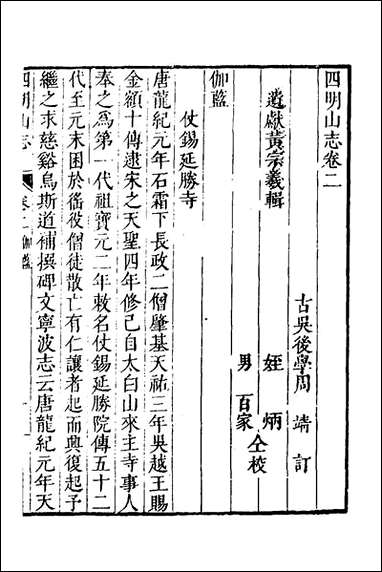 四明山志卷二
古吳後學周 靖 訂
遺獻黃宗羲輯
姪 炳
男 百家
仝校
伽藍
仗錫延勝寺
唐龍紀元年石霜下長政二僧肇基天祐三年吳越王賜
金額十傳逮宋之天聖四年修己自太白山來主寺事人
奉之爲第一代祖寶元二年敕名仗錫延勝院傳五十二
代至元末困於徭役僧徒散亡有仁讓者起而興復起予
繼之求慈谿烏斯道補撰碑文寧波志云唐龍紀元年天
四明山志
卷二伽藍